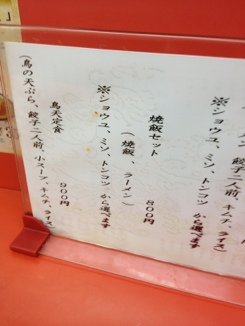 餃子二人前、キムチ、ライス)
※ショウユ、ミソ、トンコツ から選べます
焼飯セット 800円
(焼飯、ラーメン)
※ショウユ、ミソ、トンコツ から選べます
鳥天定食 900円
(鳥の天ぷら、餃子二人前、小スープ、キムチ、ライス)